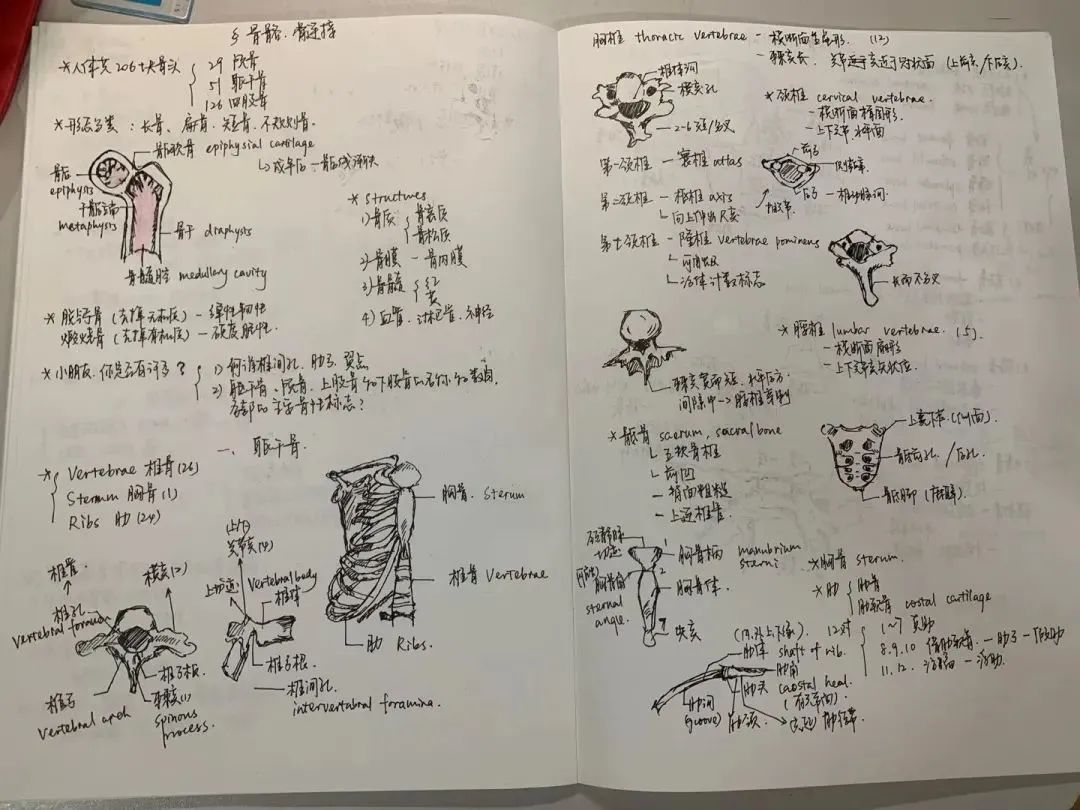 § 骨骼.骨连接
*人体共206块骨头
29 颅骨
51 躯干骨
126 四肢骨
*形态分类：长骨、扁骨、短骨、不规则骨.
骺软骨 epiphysial cartilage
成年后—骨骺线
骨骺
epiphysis
干骺端
metaphysis
骨干 diaphysis
骨髓腔 medullary cavity
* Structures
1) 骨质
骨密质
骨松质
2) 骨膜 — 骨内膜
3) 骨髓
红
黄
4) 血管、淋巴管、神经
* 脱钙骨 (去掉无机质) — 弹性韧性
煅烧骨 (去掉有机质) — 硬度脆性.
*小朋友,你是否有许多?
1) 何谓椎间孔、肋弓、翼点
2) 躯干骨、颅骨、上肢骨和下肢骨的名称和数目,
各部的主要骨性标志?
一、躯干骨.
* Vertebrae 椎骨(26)
Sternum 胸骨(1)
Ribs 肋(24)
胸骨. Sternum
椎骨 Vertebrae
肋 Ribs.
椎骨.
横突(2)
椎孔
vertebral foramen
椎弓
vertebral arch
椎弓板
棘突(1)
spinous
process.
(上/下)
关节突(4)
上切迹
Vertebral body
椎体
椎弓根
椎间孔.
intervertebral foramina.
胸椎 thoracic vertebrae — 横断面呈心形. (12)
— 棘突长. 关节突关节近于冠状面 (上向后/下向前).
椎体
横突孔
2-6 短/分叉
*颈椎 cervical vertebrae.
— 横断面椭圆形.
— 上下关节水平面
第一颈椎 — 寰椎 atlas
前弓
侧块
后弓 — 椎动脉沟
第二颈椎 — 枢椎 axis
向上伸出齿突
第七颈椎 — 隆椎 vertebrae prominens
活体计数标志
长而不分叉
*腰椎 lumbar vertebrae. (5)
— 横断面肾形
— 上下关节突矢状位.
棘突宽而短.水平后方.
间隙中 → 腰椎穿刺
*骶骨 sacrum, sacral bone
五块骨椎
前凹
— 背面粗糙
— 上连椎骨.
骶前孔/后孔.
颈静脉
切迹
胸骨柄 manubrium
sterni
*胸骨 sternum
胸骨角
sternal
angle.
胸骨体.
剑突
*肋
肋骨
肋软骨 costal cartilage
12对
1~7 真肋
8.9.10 — 肋弓 — 假肋
11.12. — 浮肋.
肋体 shaft of rib.
肋角
肋头 caostal heal.
(有关节面)
肋沟
(groove)
肋颈
肋结节.